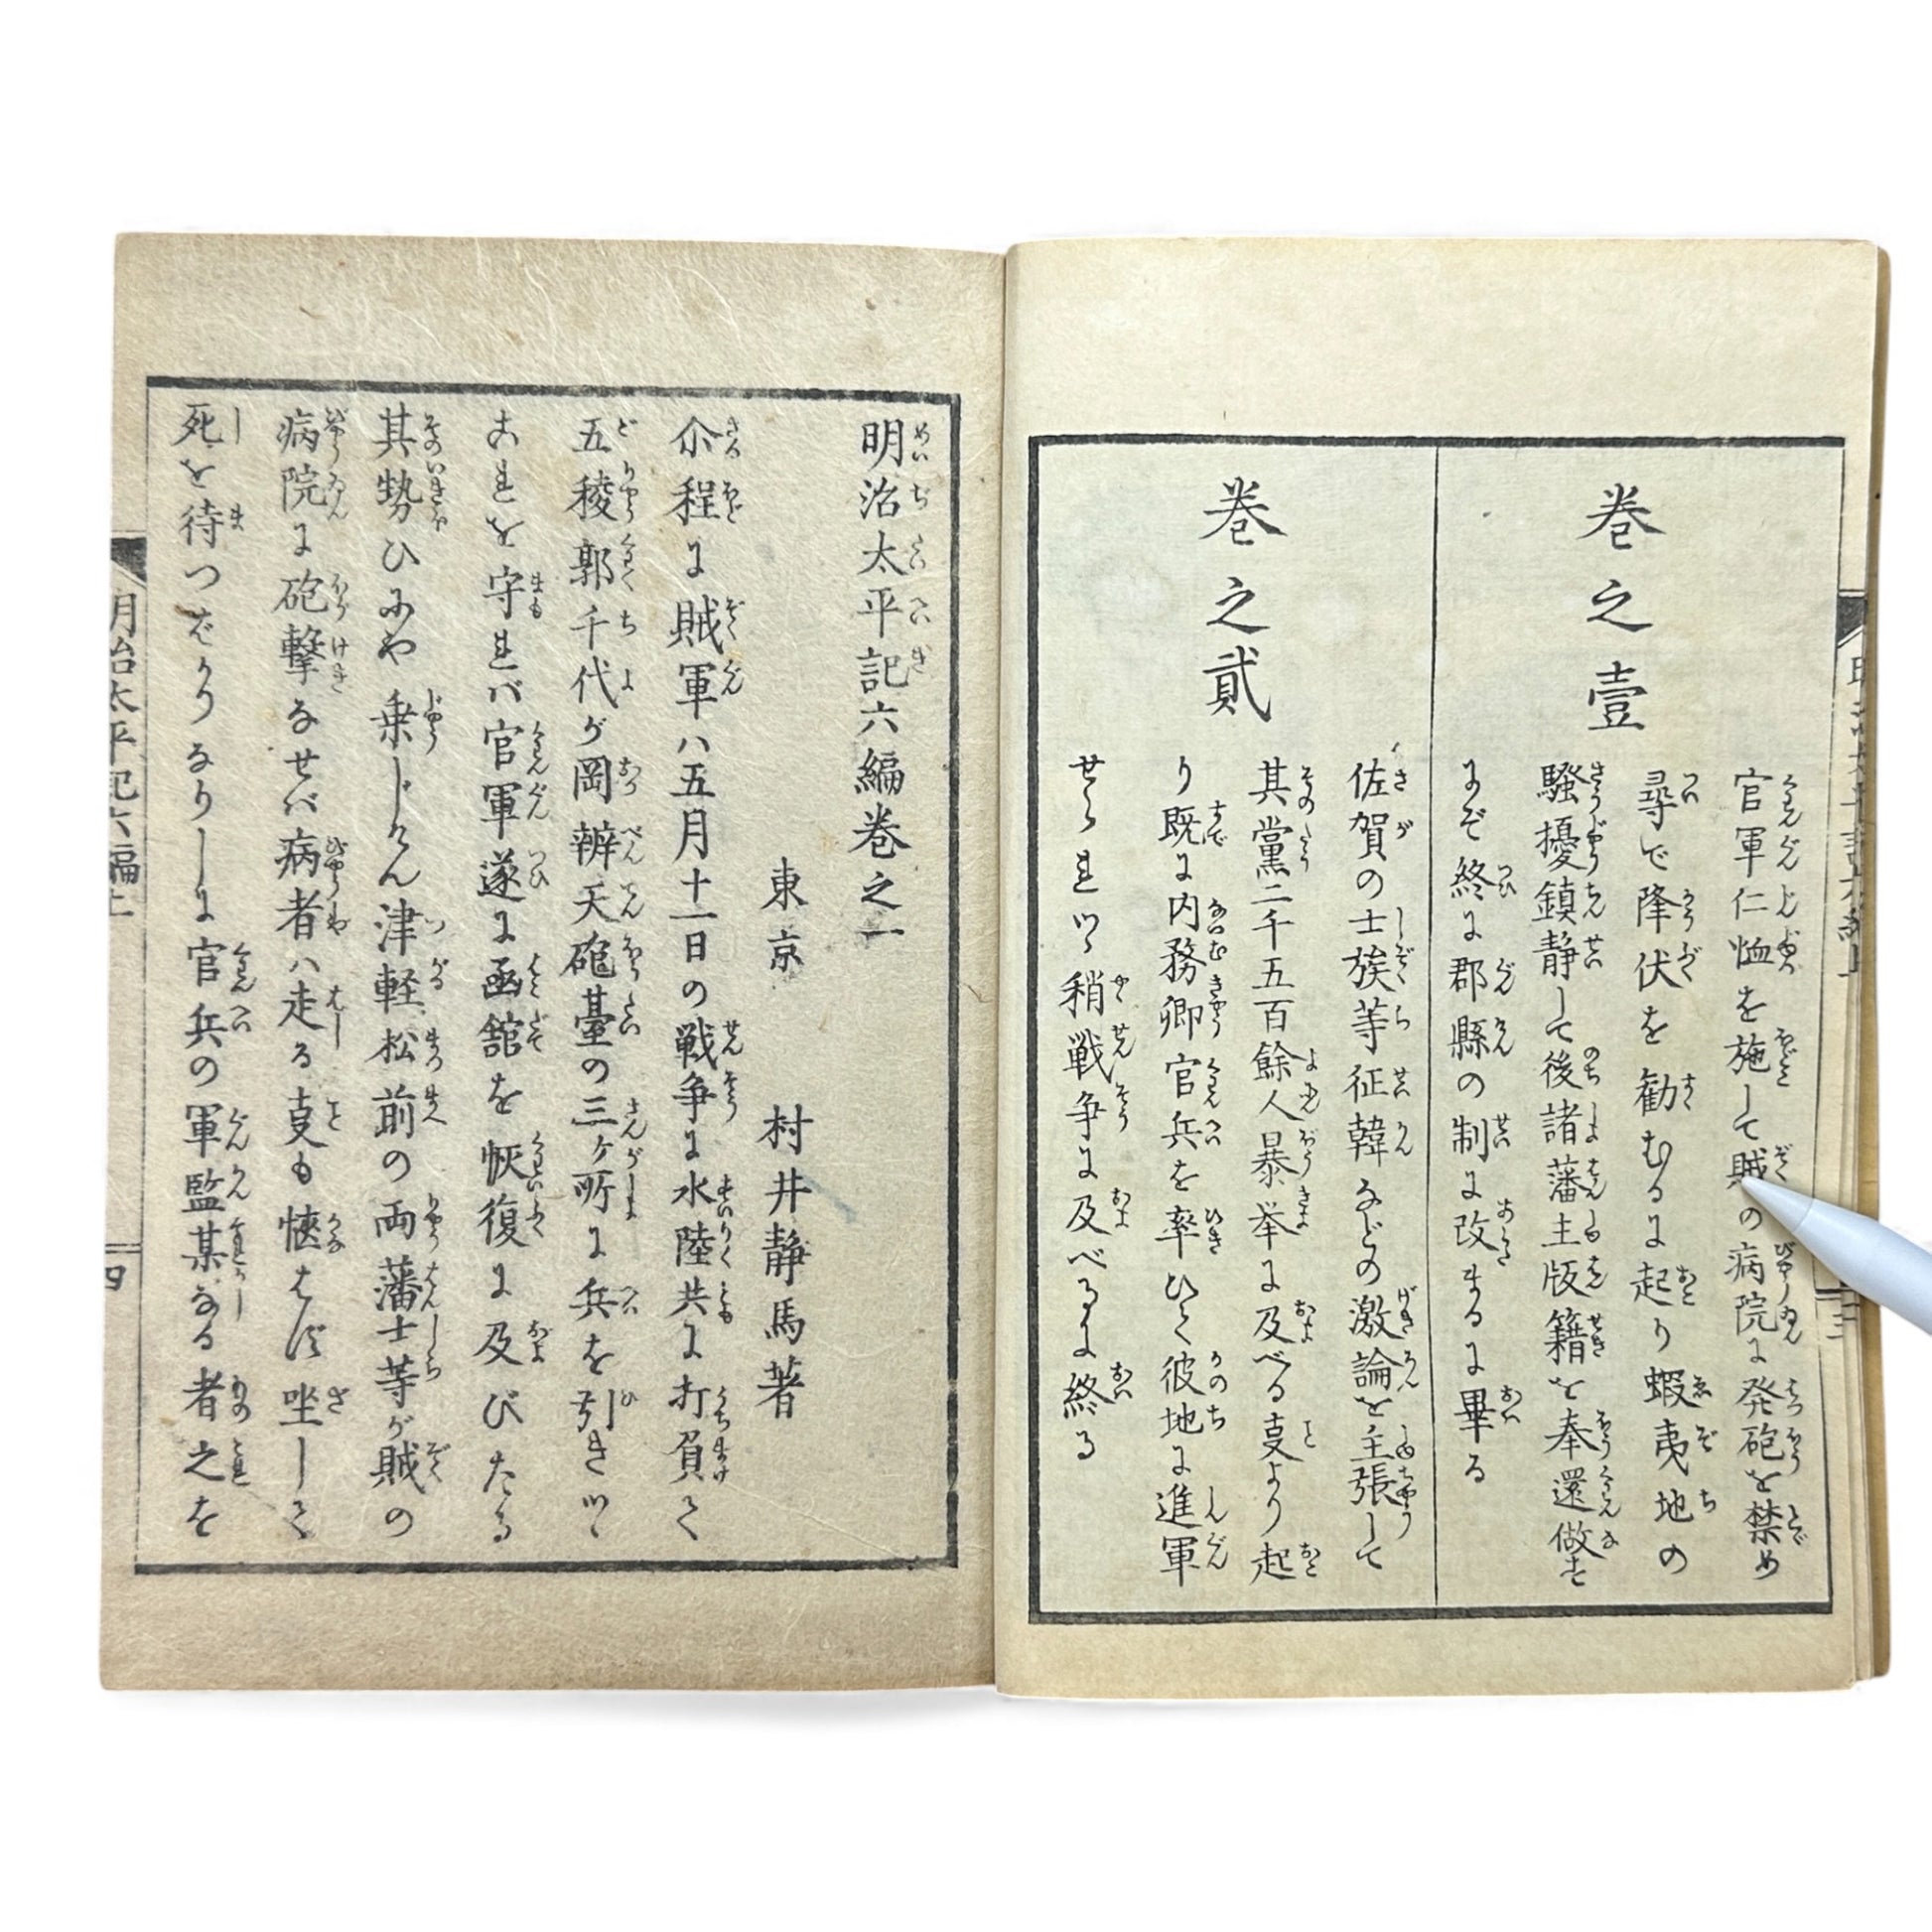 巻之壹
官軍仁恤を施して賊の病院に発砲を禁め
尋で降伏を勧むるに起り蝦夷地の
騒擾鎮静して後諸藩主版籍を奉還做す
まで終に郡縣の制に改まるに畢る
巻之貳
佐賀の士族等征韓などの激論を主張して
其黨二千五百餘人暴挙に及べる支より起
り既に内務卿官兵を率ひて彼地に進軍
せられツヽ稍戦争に及べるに終る
明治太平記六編巻之一
東京 村井静馬著
尒程に賊軍ハ五月十一日の戦争に水陸共に打負て
五稜郭千代が岡辨天砲臺の三ヶ所に兵を引きツヽ
これを守れバ官軍遂に函舘を恢復に及びたる
其勢ひにや乗じけん津軽松前の両藩士等が賊の
病院に砲撃なせバ病者ハ走る支も愜はず坐して
死を待つばかりなりしに官兵の軍監某なる者之を
明治太平記六編上
四